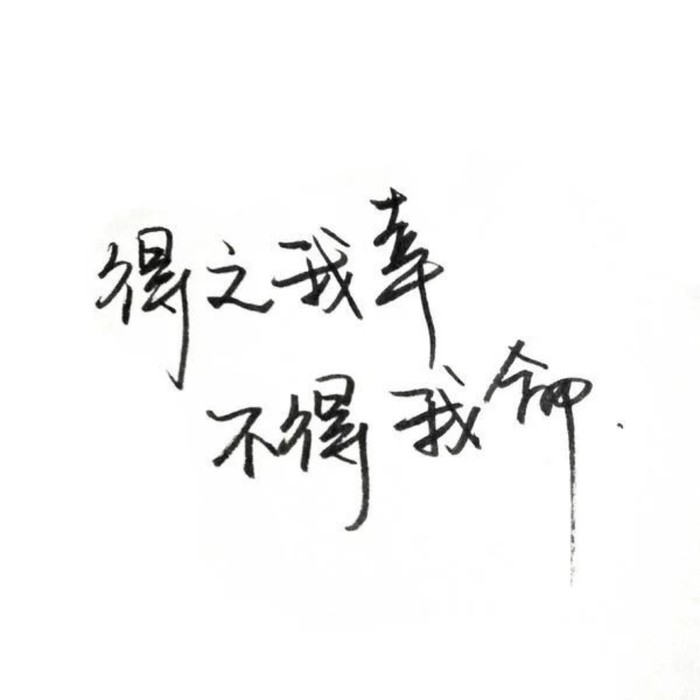 得之我幸
不得我命.